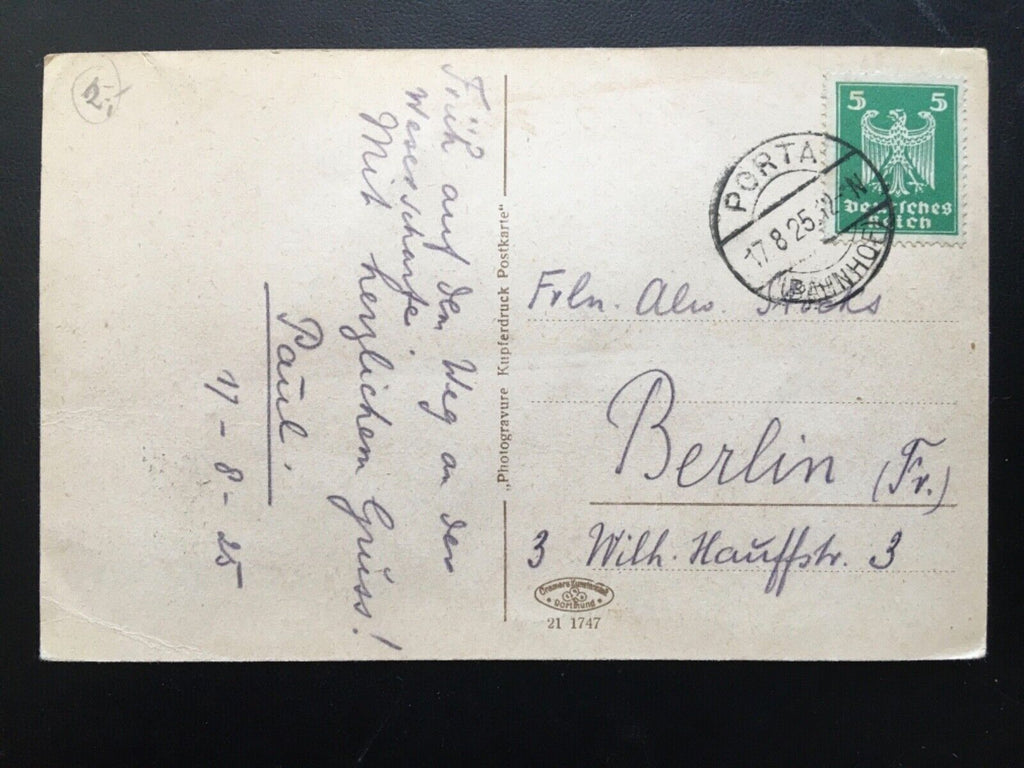 2.-
Früh auf dem Weg an der
Weserscharte.
Mit herzlichem Gruss!
Paul
17-8-25
"Photogravure Kupferdruck Postkarte"
5 5
Deutsches
Reich
PORTA
17.8.25.12-N
(BAHNHOF)
Frln. Alw.
Berlin (Fr.)
3 Wilh. Hauffstr. 3
Cramers Kunstanstalt
Dortmund
21 1747